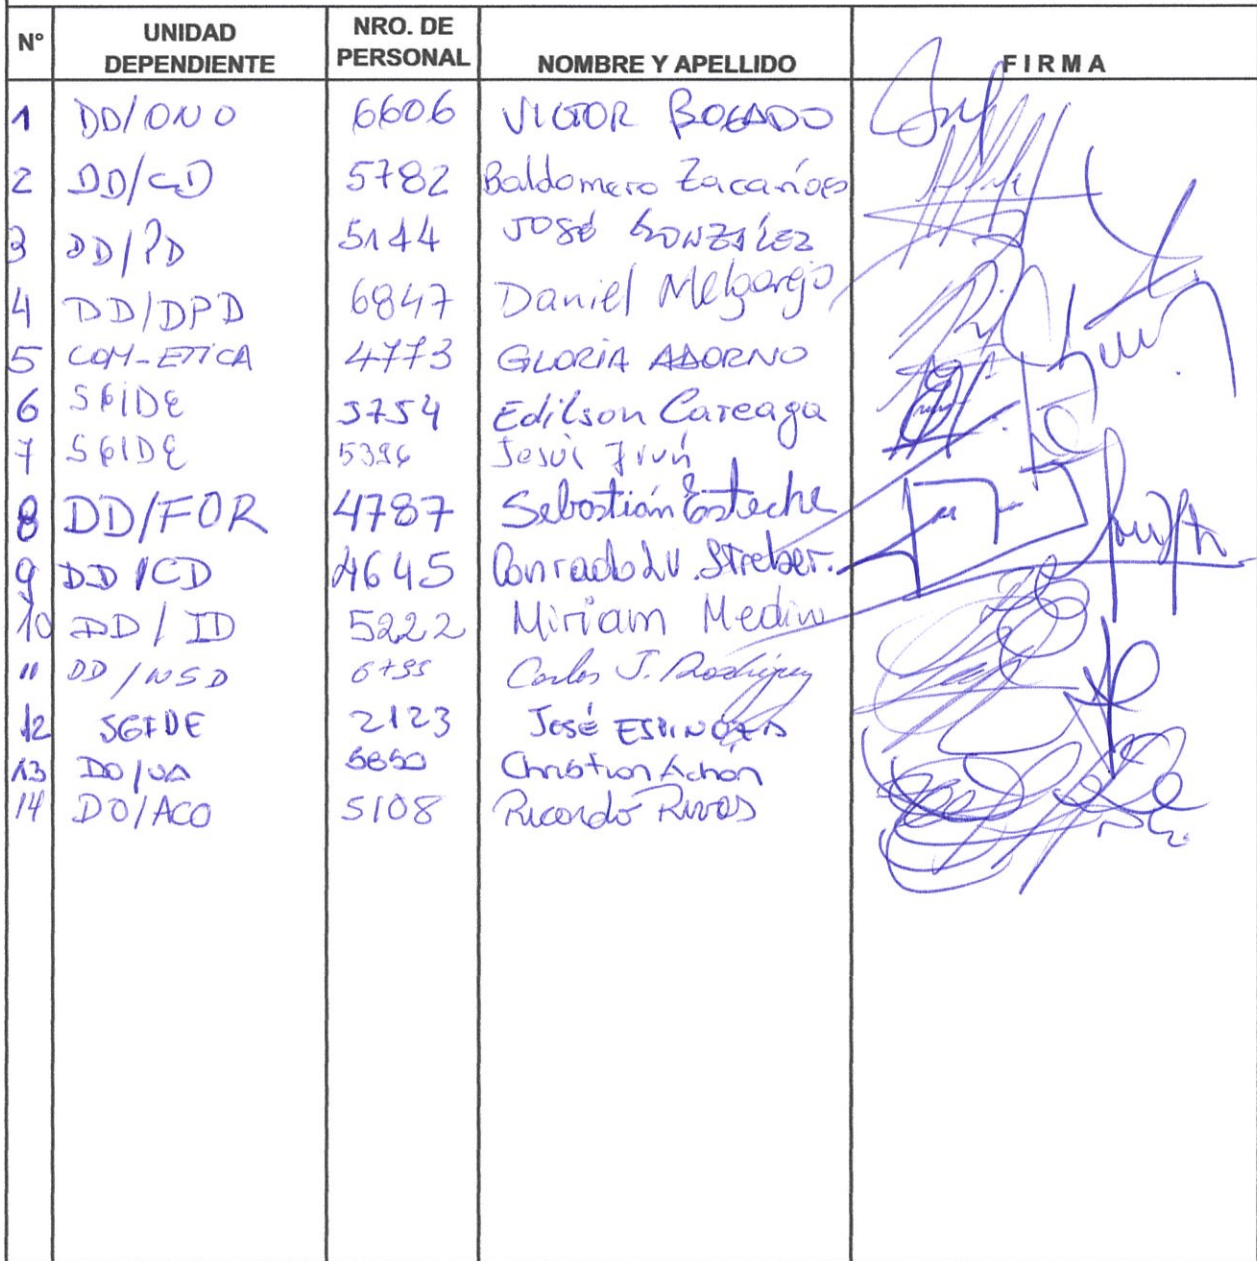 N° UNIDAD DEPENDIENTE NRO. DE PERSONAL NOMBRE Y APELLIDO FIRMA
1 DD/ONO 6606 VICTOR BOGADO
2 DD/CD 5782 Baldomero Zacarías
3 DD/PD 5144 JOSÉ GONZÁLEZ
4 DD/DPD 6847 Daniel Melgarejo
5 COM-ETICA 4773 GLORIA ADORNO
6 SGIDE 5754 Edilson Careaga
7 SGIDE 5396 Jesús
8 DD/FOR 4787 Sebastián Esteche
9 DD/CD 4645 Conrado W. Streber.
10 DD/ID 5222 Miriam Medina
11 DD/NSD 6795 Carlos J. Rodríguez
12 SGIDE 2123 José ESPINOZA
13 Christian Achon
14 DO/ACO 5108 Ricardo Rivas